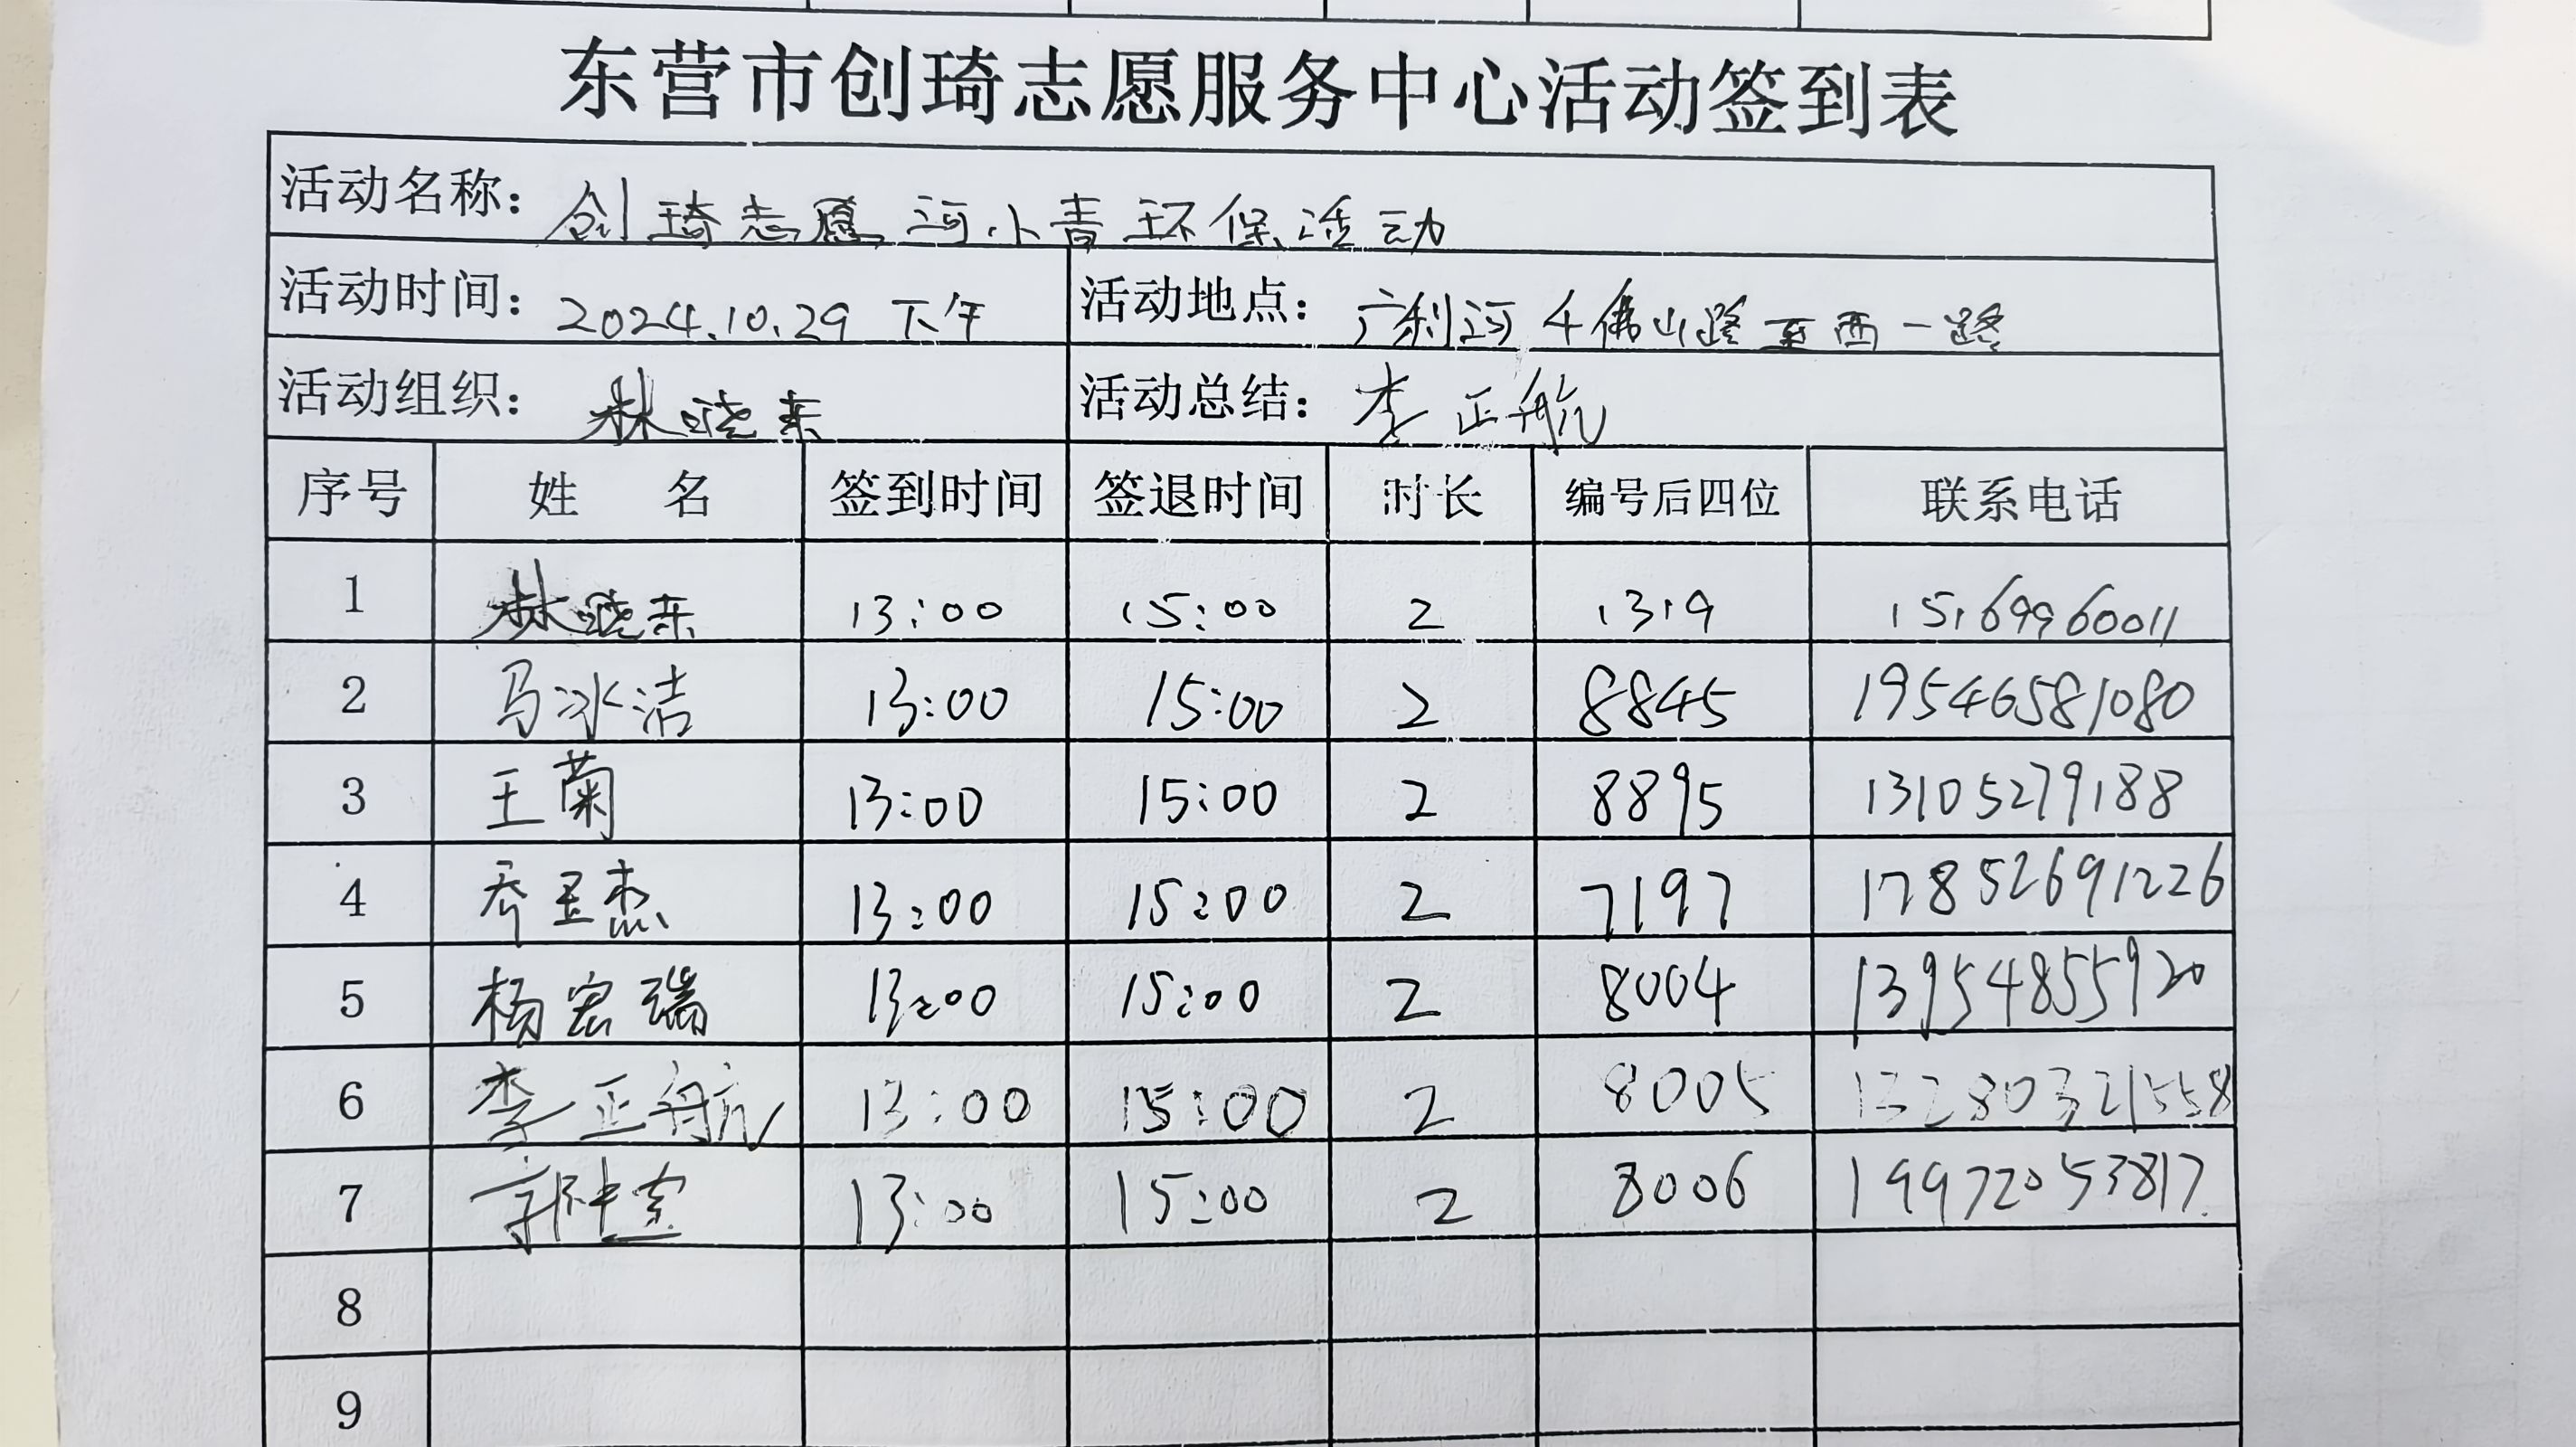 东营市创琦志愿服务中心活动签到表
活动名称：创琦志愿河小青环保活动
活动时间：2024.10.29 下午 活动地点：广利河千佛山路至西一路
活动组织：林晓东 活动总结：李正航
序号 姓名 签到时间 签退时间 时长 编号后四位 联系电话
1 林晓东 13:00 15:00 2 1319 15169960011
2 马冰洁 13:00 15:00 2 8845 19546581080
3 王菊 13:00 15:00 2 8895 13105279188
4 乔显杰 13:00 15:00 2 7197 17852691226
5 杨宏瑞 13:00 15:00 2 8004 13954855920
6 李正航 13:00 15:00 2 8005
7 13:00 15:00 2 8006 19972053817
8
9